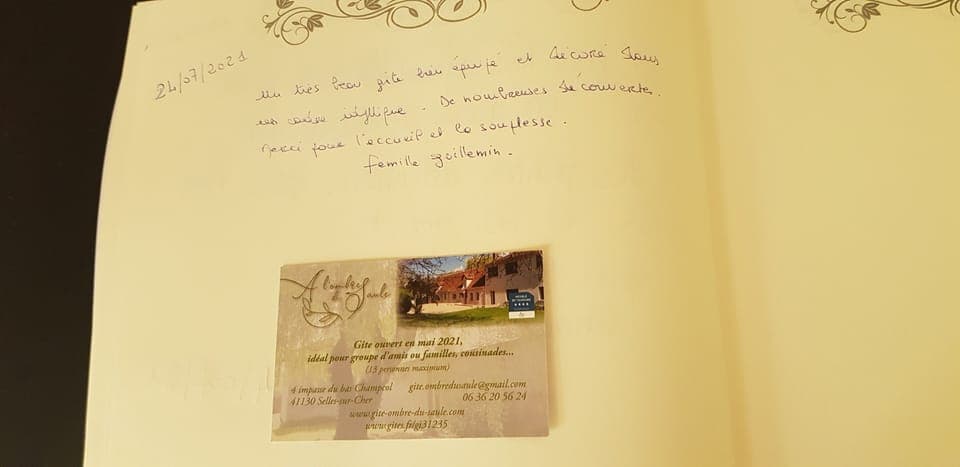 24/07/2021
Un très beau gîte bien équipé et décoré dans
un cadre idyllique. De nombreuses découvertes.
Merci pour l'accueil et la souplesse.
famille guillemin.
A l'ombre
du Saule
Gîte ouvert en mai 2021,
idéal pour groupe d'amis ou familles, cousinades...
(13 personnes maximum)
4 impasse du bas Champcol
41130 Selles-sur-Cher
gite.ombredusaule@gmail.com
06 36 20 56 24
www.gite-ombre-du-saule.com
www.gites.fr/gj31235